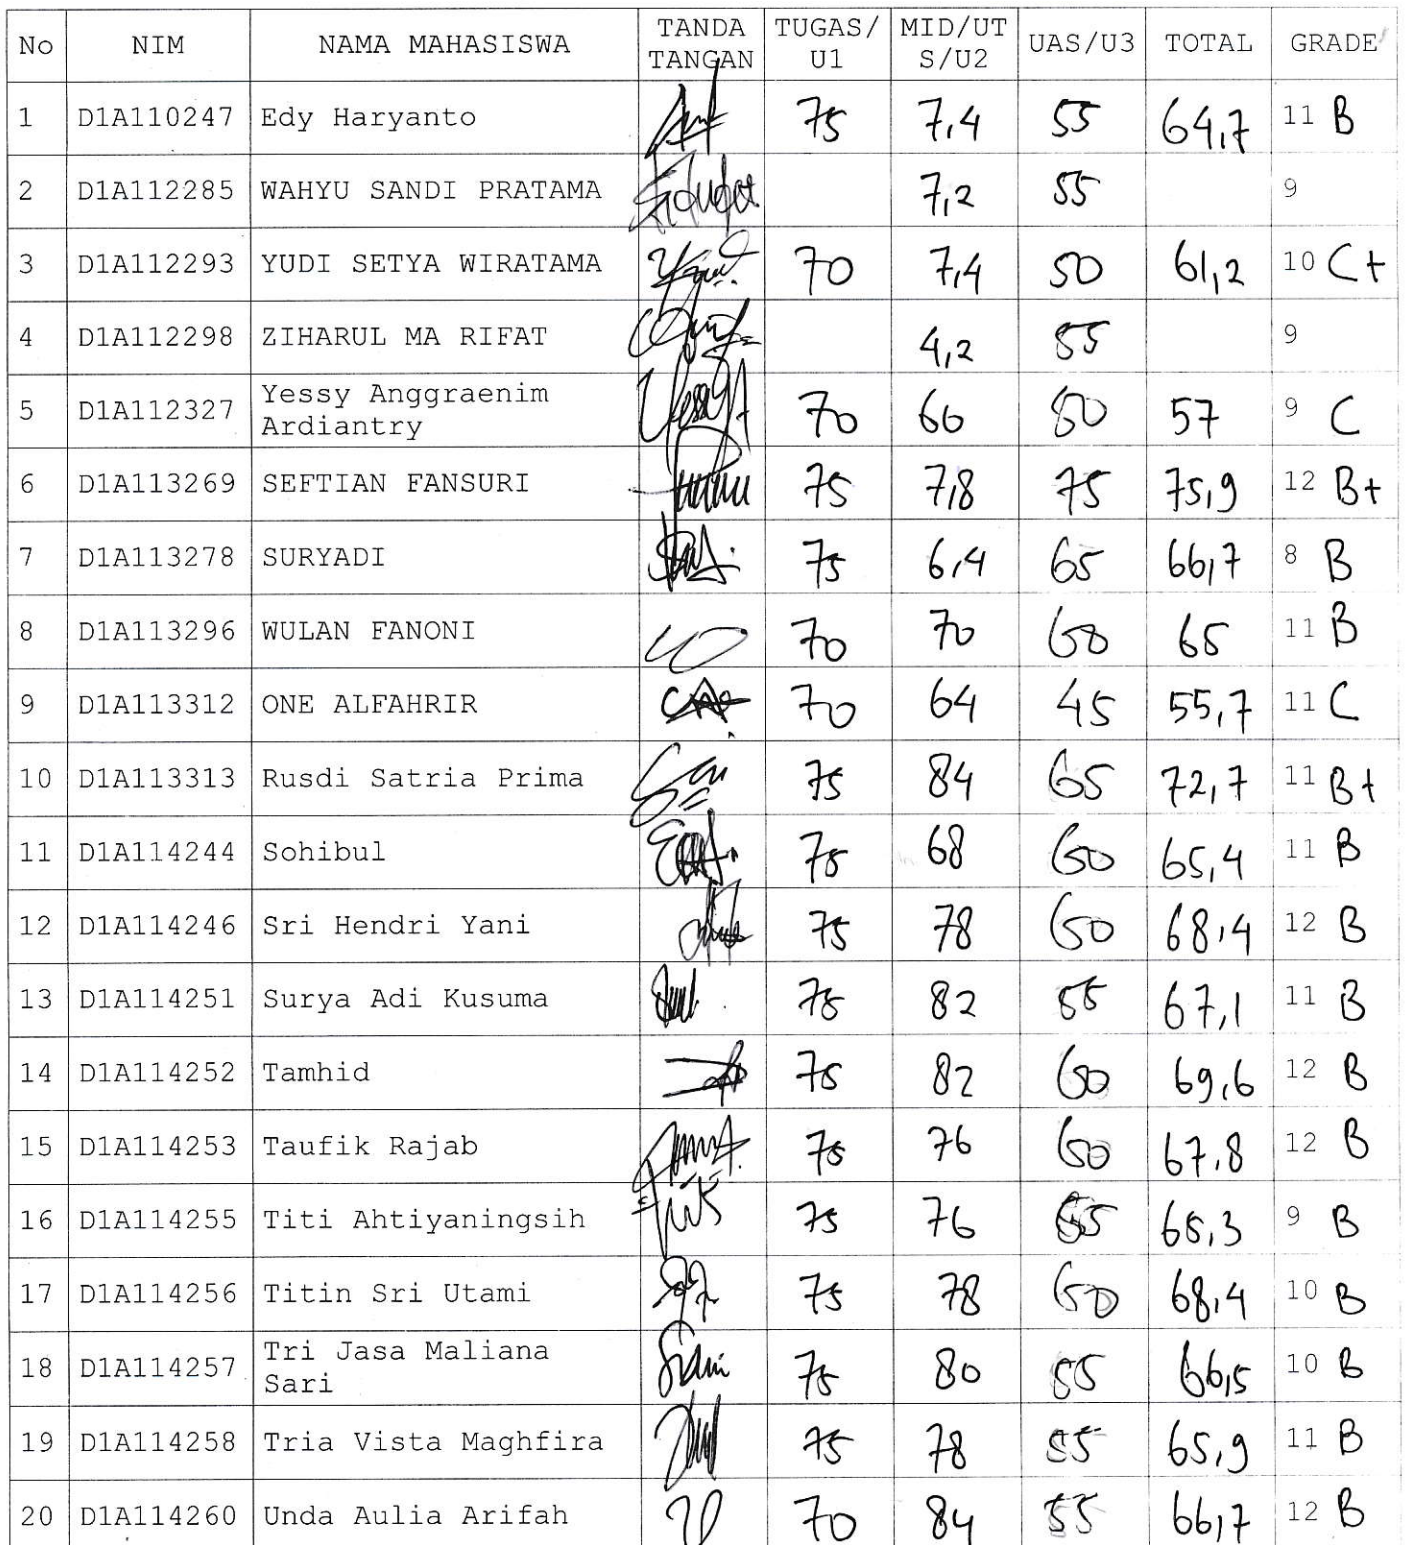 No NIM NAMA MAHASISWA TANDA TANGAN TUGAS/ U1 MID/UT S/U2 UAS/U3 TOTAL GRADE
1 D1A110247 Edy Haryanto 75 7,4 55 64,7 11 B
2 D1A112285 WAHYU SANDI PRATAMA 7,2 55 9
3 D1A112293 YUDI SETYA WIRATAMA 70 7,4 50 61,2 10 C+
4 D1A112298 ZIHARUL MA RIFAT 4,2 55 9
5 D1A112327 Yessy Anggraenim Ardiantry 70 60 50 57 9 C
6 D1A113269 SEFTIAN FANSURI 75 7,8 75 75,9 12 B+
7 D1A113278 SURYADI 75 6,4 65 66,7 8 B
8 D1A113296 WULAN FANONI 70 70 60 65 11 B
9 D1A113312 ONE ALFAHRIR 70 64 45 55,7 11 C
10 D1A113313 Rusdi Satria Prima 75 84 65 72,7 11 B+
11 D1A114244 Sohibul 75 68 60 65,4 11 B
12 D1A114246 Sri Hendri Yani 75 78 60 68,4 12 B
13 D1A114251 Surya Adi Kusuma 75 82 55 67,1 11 B
14 D1A114252 Tamhid 75 82 60 69,6 12 B
15 D1A114253 Taufik Rajab 75 76 60 67,8 12 B
16 D1A114255 Titi Ahtiyaningsih 75 76 55 65,3 9 B
17 D1A114256 Titin Sri Utami 75 78 60 68,4 10 B
18 D1A114257 Tri Jasa Maliana Sari 75 80 55 66,5 10 B
19 D1A114258 Tria Vista Maghfira 75 78 55 65,9 11 B
20 D1A114260 Unda Aulia Arifah 70 84 55 66,7 12 B